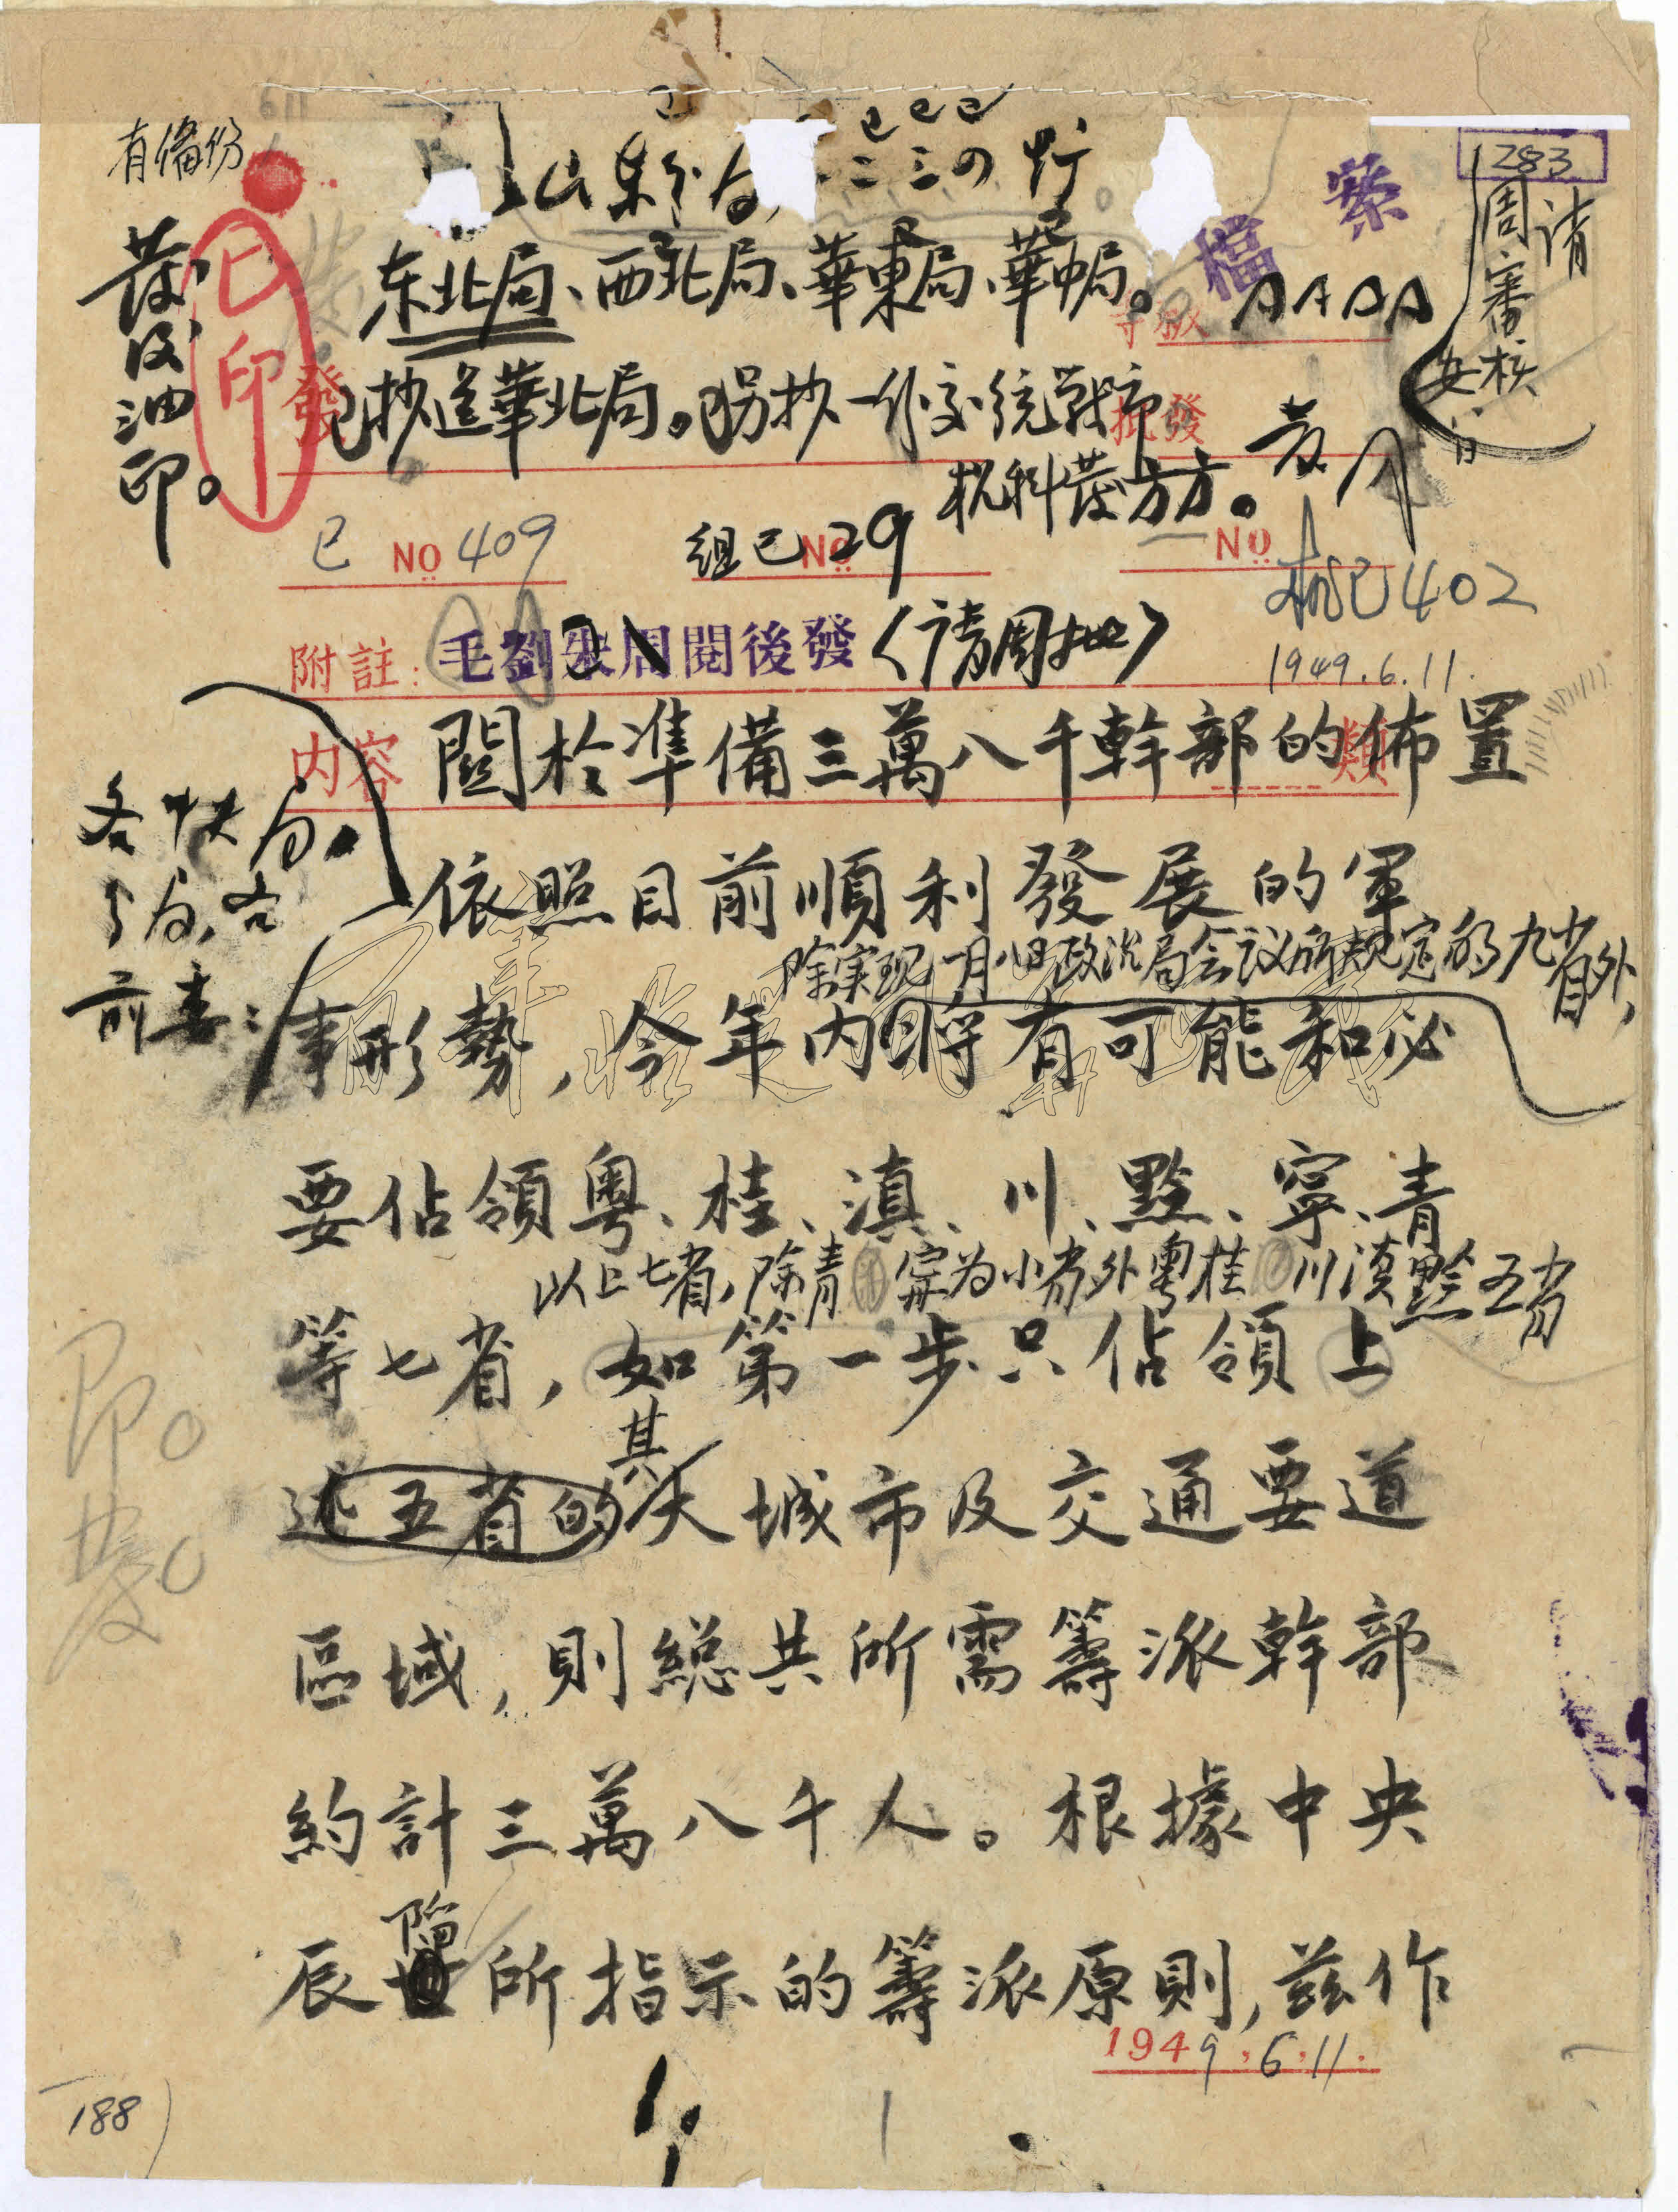 有備份
283
檔案
请
周審核
發
已印
发及油印。
东北局、西北局、華東局、華中局。
AAAA
等級
發
已抄送華北局。已另抄一份交统戰部
批發
机科发方方。
已 NO 409
組已 NO 29
NO
机已402
附註：
毛劉朱周閱後發（请周批）
1949.6.11.
内容
類
關於準備三萬八千幹部的佈置
各中央局、分局，各前委：
依照目前順利發展的軍
除实现一月八日政治局会议所规定的九省外，
事形勢，今年内将有可能和必
要佔領粤、桂、滇、川、黔、寧、青
以上七省，除青寧为小省外粤桂川滇黔五省
等七省，如第一步只佔領上
其
述五省的大城市及交通要道
區域，則總共所需籌派幹部
約計三萬八千人。根據中央
辰所指示的籌派原則，兹作
1949.6.11.
印。发。
1.
188